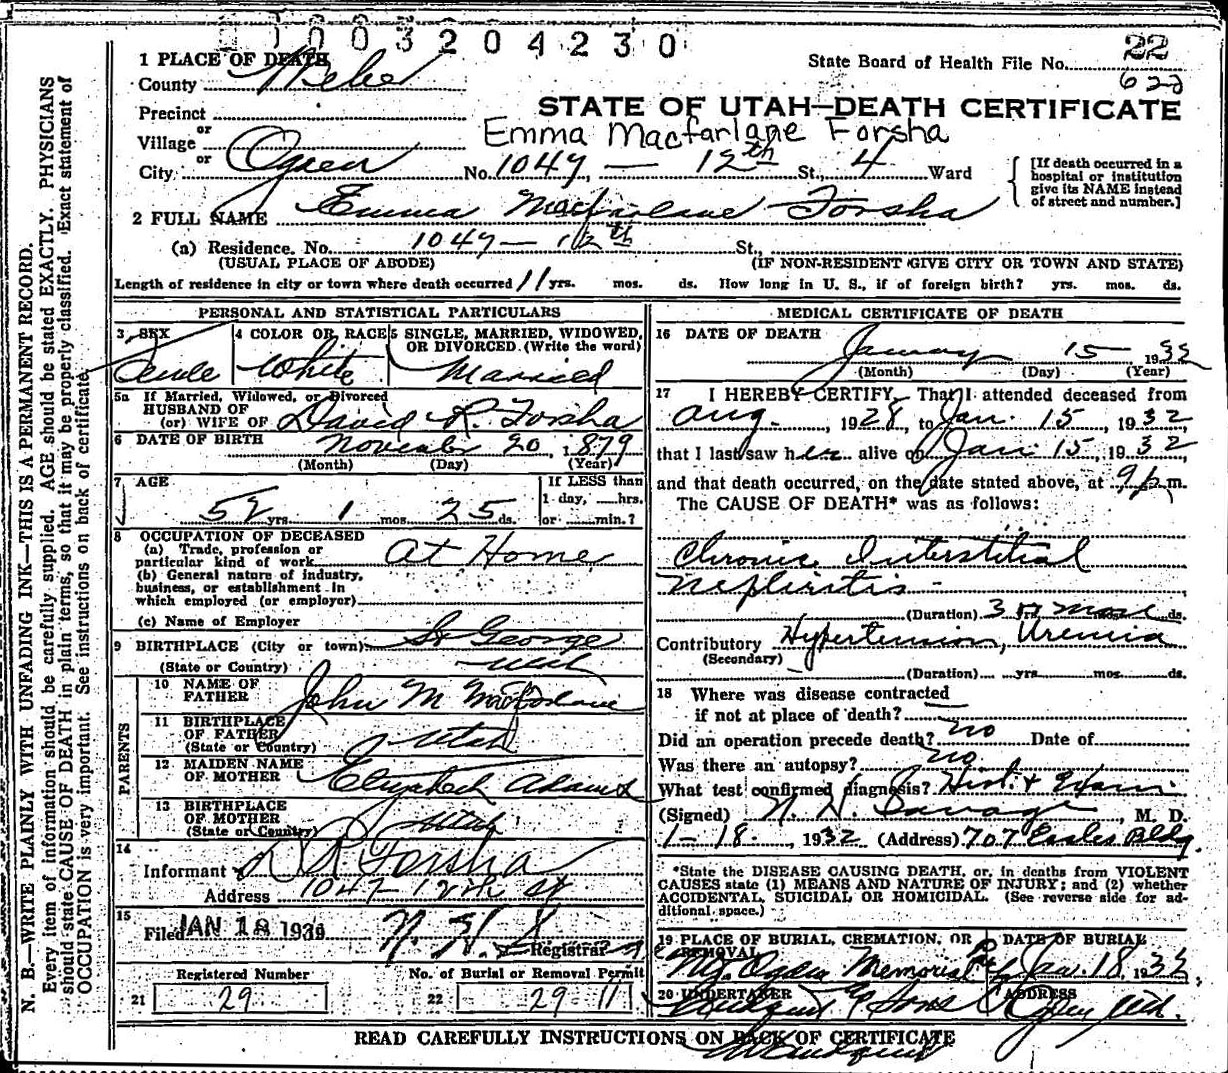 0003204230
1 PLACE OF DEATH
County Weber
State Board of Health File No. 22
622
STATE OF UTAH—DEATH CERTIFICATE
Precinct
or
Village
Emma Macfarlane Forsha
or
City Ogden No. 1047, — 12th St., 4 Ward
[If death occurred in a hospital or institution give its NAME instead of street and number.]
2 FULL NAME Emma Macfarlane Forsha
(a) Residence. No. 1047 — 12th St.,
(USUAL PLACE OF ABODE) (IF NON-RESIDENT GIVE CITY OR TOWN AND STATE)
Length of residence in city or town where death occurred 11 yrs. mos. ds. How long in U. S., if of foreign birth? yrs. mos. ds.
PERSONAL AND STATISTICAL PARTICULARS
3 SEX 4 COLOR OR RACE 5 SINGLE, MARRIED, WIDOWED,
OR DIVORCED (Write the word)
Female White Married
5a If Married, Widowed, or Divorced
HUSBAND OF
(or) WIFE OF David R. Forsha
6 DATE OF BIRTH November 20, 1879
(Month) (Day) (Year)
7 AGE If LESS than
1 day, hrs.
52 yrs. 1 mos. 25 ds. or min.?
8 OCCUPATION OF DECEASED
(a) Trade, profession or
particular kind of work At Home
(b) General nature of industry,
business, or establishment in
which employed (or employer)
(c) Name of Employer
9 BIRTHPLACE (City or town) St George
(State or Country) Utah
PARENTS
10 NAME OF
FATHER John M Macfarlane
11 BIRTHPLACE
OF FATHER
(State or Country) Utah
12 MAIDEN NAME
OF MOTHER Elizabeth Adams
13 BIRTHPLACE
OF MOTHER
(State or Country) Utah
14
Informant D R Forsha
Address 1047 - 12th St
15
Filed JAN 18 193 N. H. Registrar
Registered Number No. of Burial or Removal Permit
21 29 22 29 11
MEDICAL CERTIFICATE OF DEATH
16 DATE OF DEATH
January 15 - 193
(Month) (Day) (Year)
17 I HEREBY CERTIFY, That I attended deceased from
Aug. , 1928, to Jan. 15, 1932
that I last saw her alive on Jan 15, 1932
and that death occurred, on the date stated above, at 9 p m.
The CAUSE OF DEATH* was as follows:
Chronic Interstitial
Nephritis -
(Duration) 3 yrs mos. ds.
Contributory Hypertension, Uremia
(Secondary)
(Duration) yrs. mos. ds.
18 Where was disease contracted
if not at place of death?
Did an operation precede death? no Date of
Was there an autopsy? no
What test confirmed diagnosis? Hist. +
(Signed) N. H. Savage, M. D.
1-18, 1932 (Address) 707 Eccles Bldg.
*State the DISEASE CAUSING DEATH, or, in deaths from VIOLENT
CAUSES state (1) MEANS AND NATURE OF INJURY; and (2) whether
ACCIDENTAL, SUICIDAL OR HOMICIDAL. (See reverse side for ad-
ditional space.)
19 PLACE OF BURIAL, CREMATION, OR
REMOVAL DATE OF BURIAL
Memorial Jan. 18, 193
20 UNDERTAKER ADDRESS
Lindquist & Sons Ogden Utah.
READ CAREFULLY INSTRUCTIONS ON BACK OF CERTIFICATE
N. B.—WRITE PLAINLY WITH UNFADING INK—THIS IS A PERMANENT RECORD.
Every item of information should be carefully supplied. AGE should be stated EXACTLY. PHYSICIANS
should state CAUSE OF DEATH in plain terms, so that it may be properly classified. Exact statement of
OCCUPATION is very important. See instructions on back of certificate.